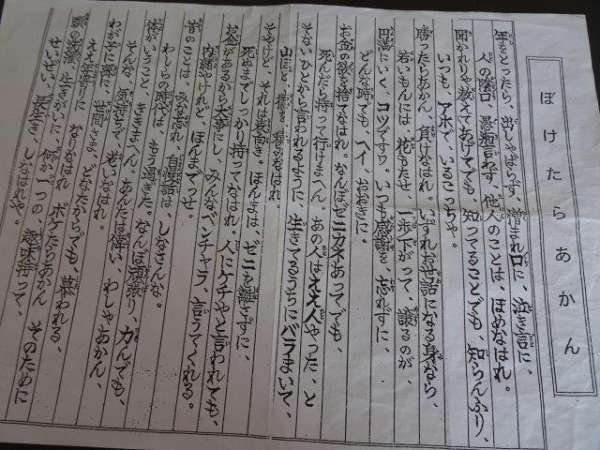 ぼけたらあかん
年をとったら、出しゃばらず、憎まれ口に、泣き言に、
人の陰口、愚痴言わず、他人のことは、ほめなはれ。
聞かれりゃ教えてあげてでも、知ってることでも、知らんふり、
いつも、アホで、いるこっちゃ。
勝ったらあかん、負けなはれ。いずれお世話になる身なら、
若いもんには、花もたせ、一歩下がって、譲るのが、
円満にいく、コツですワ。いつも感謝を、忘れずに、
どんな時でも、ヘイ、おおきに。
お金の欲を捨てなはれ。なんぼゼニカネあってでも、
死んだら持って行けまへん。あの人はええ人やった、と
そないひとから言われるように、生きてるうちにバラまいて、
山ほど徳を積みなはれ。
そやけど、それは表向き。ほんまは ゼニを離さずに、
死ぬまでしっかり持ってなはれ。人にケチやと言われても、
お金があるから大事にし、みんなベンチャラ、言うてくれる。
内緒やけれど、ほんまでっせ。
昔のことは、みな忘れ、自慢話は、しなさんな。
わしらの時代は、もう過ぎた。なんぼ頑張り、力んでも、
体がいうこと、ききまへん。あんたは偉い、わしゃあかん、
そんな気持ちで、おりなはれ。
わが子に孫に、世間さま、どなたからでも、慕われる、
ええ年寄りに なりなはれ ボケたらあかん そのために
頭の洗濯 生きがいに、何か一つの 趣味持って、
せいぜい、長生き、しなはれや。